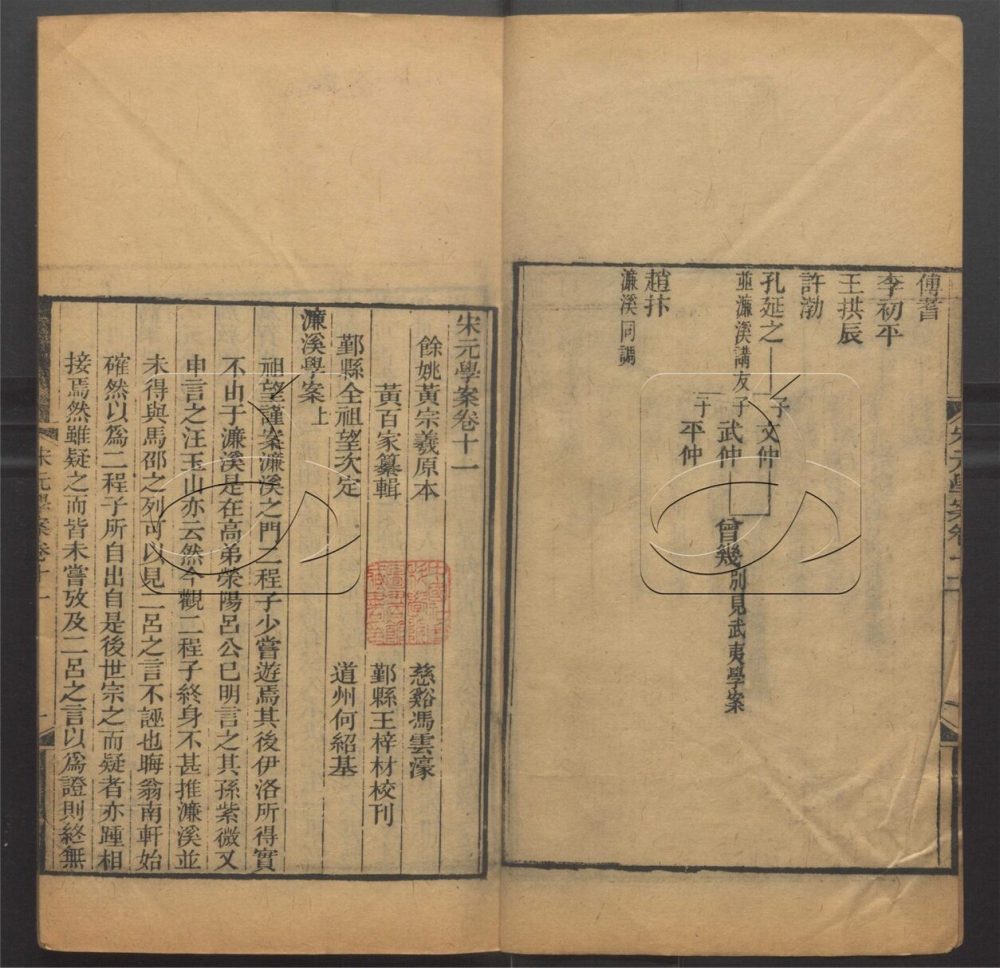 傅耆
李初平
王拱辰
許渤
孔延之
並濂溪講友
子文仲
子武仲
子平仲
曾幾別見武夷學案
趙抃
濂溪同調
宋元學案卷十一
餘姚黃宗羲原本
黃百家纂輯
鄞縣全祖望次定
慈谿馮雲濠
鄞縣王梓材校刊
道州何紹基
濂溪學案上
祖望謹案濂溪之門二程子少嘗遊焉其後伊洛所得實
不由于濂溪是在高弟滎陽呂公巳明言之其孫紫微又
申言之汪玉山亦云然今觀二程子終身不甚推濂溪並
未得與馬邵之列可以見二呂之言不誣也晦翁南軒始
確然以爲二程子所自出自是後世宗之而疑者亦踵相
接焉然雖疑之而皆未嘗攷及二呂之言以爲證則終無
宋元學案卷十一
一